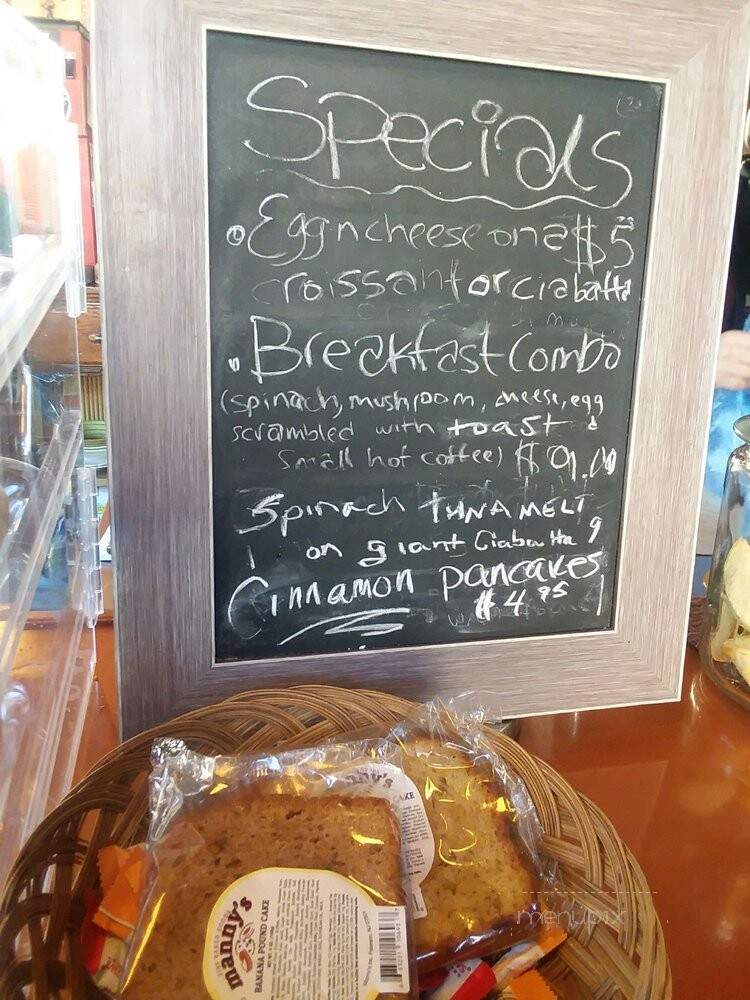 Specials
Egg n cheese on a $5
croissant or ciabatta
Breakfast Combo
(spinach, mushroom, cheese, egg
scrambled with toast &
small hot coffee) $9.00
Spinach TUNA MELT
on giant Ciabatta 9
Cinnamon pancakes
$4.95
manny's
CAKE
manny's
BANANA POUND CAKE
menupix